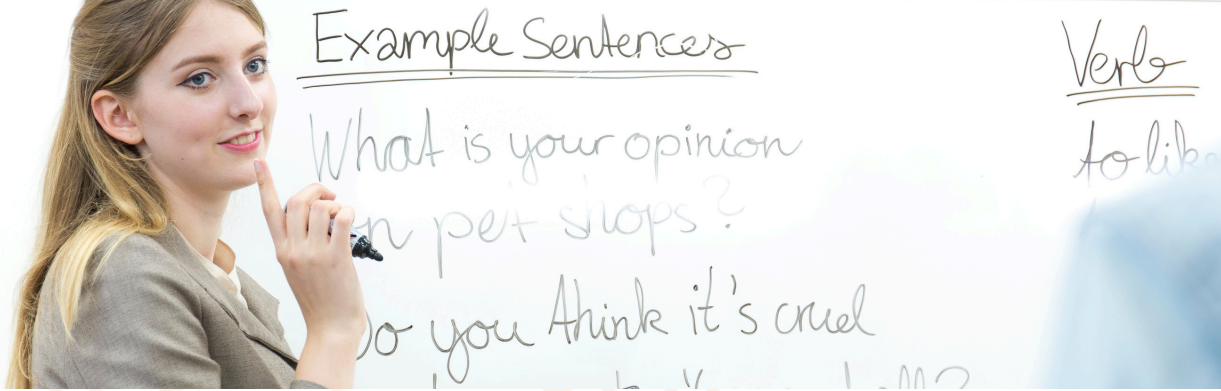 Example Sentences
What is your opinion
on pet shops?
Do you think it's cruel
Verb
to like